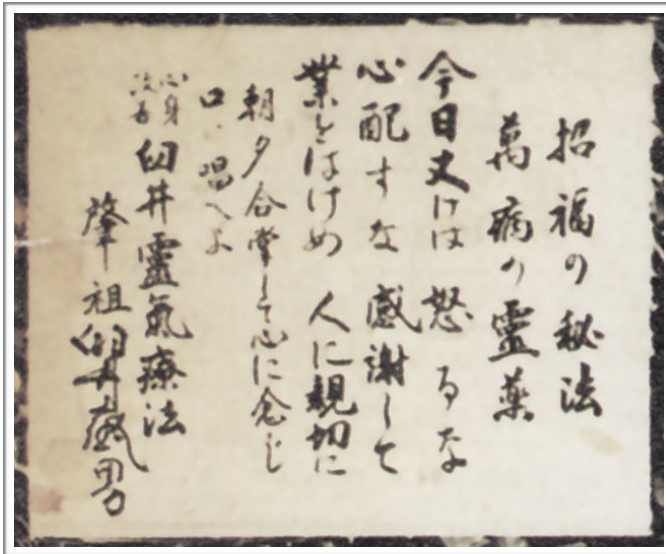 招福の秘法
萬病の靈薬
今日丈けは 怒るな
心配すな 感謝して
業をはけめ 人に親切に
朝夕合掌して心に念じ
口に唱へよ
心身改善 臼井靈氣療法
肇祖 臼井甕男